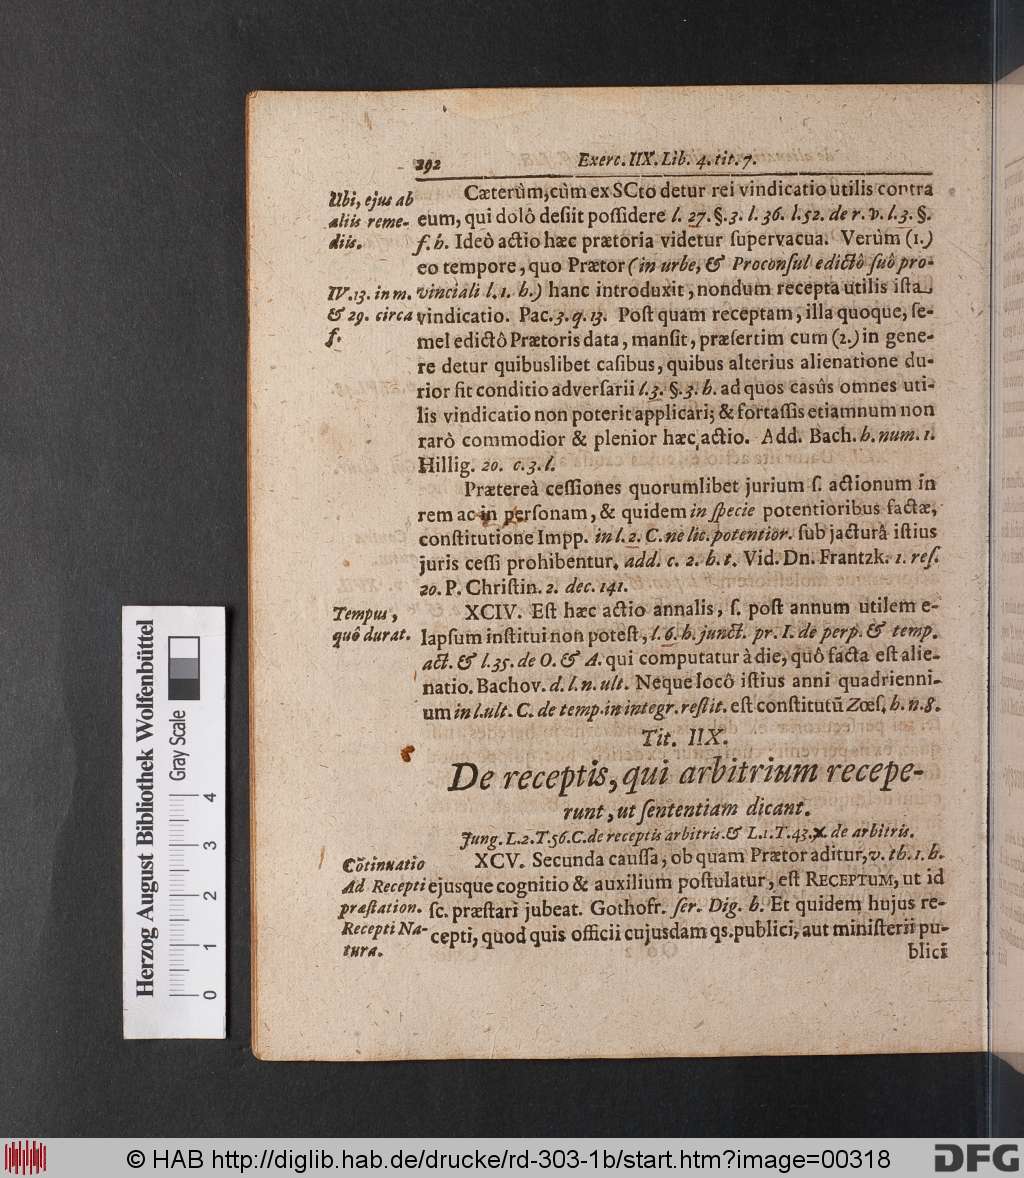 292 Exerc. IIX. Lib. 4. tit. 7.
Ubi, ejus ab
aliis reme-
diis.
Cæterùm, cùm ex SCto detur rei vindicatio utilis contra
eum, qui dolô desiit possidere l. 27. §. 3. l. 36. l. 52. de r. v. l. 3. §.
f. h. Ideò actio hæc prætoria videtur supervacua. Verùm (1.)
eo tempore, quo Prætor (in urbe, & Proconsul edictô suô pro-
IV. 13. in m.
& 29. circa
f.
vinciali l. 1. h.) hanc introduxit, nondum recepta utilis ista
vindicatio. Pac. 3. q. 13. Postquam receptam, illa quoque, se-
mel edictô Prætoris data, mansit, præsertim cum (2.) in gene-
re detur quibuslibet casibus, quibus alterius alienatione du-
rior fit conditio adversarii l. 3. §. 3. h. ad quos casûs omnes uti-
lis vindicatio non poterit applicari; & fortassis etiamnum non
rarò commodior & plenior hæc actio. Add. Bach. h. num. 1.
Hillig. 20. c. 3. l.
Prætereà cessiones quorumlibet jurium s. actionum in
rem ac in personam, & quidem in specie potentioribus factæ,
constitutione Impp. in l. 2. C. ne lic. potentior. sub jacturâ istius
juris cessi prohibentur, add. c. 2. h. t. Vid. Dn. Frantzk. 1. res.
20. P. Christin. 2. dec. 141.
Tempus,
quô durat.
XCIV. Est hæc actio annalis, s. post annum utilem e-
lapsum institui non potest, l. 6. h. junct. pr. I. de perp. & temp.
act. & l. 35. de O. & A. qui computatur à die, quô facta est alie-
natio. Bachov. d. l. n. ult. Neque locô istius anni quadrienni-
um in l. ult. C. de temp. in integr. restit. est constitutū Zœs. h. n. 8.
Tit. IIX.
De receptis, qui arbitrium recepe-
runt, ut sententiam dicant.
Jung. L. 2. T. 56. C. de receptis arbitris. & L. 1. T. 43. X. de arbitris.
Cōtinuatio
Ad Recepti
præstation.
Recepti Na-
tura.
XCV. Secunda caussa, ob quam Prætor aditur, v. th. 1. h.
ejusque cognitio & auxilium postulatur, est RECEPTUM, ut id
sc. præstari jubeat. Gothofr. ser. Dig. h. Et quidem hujus re-
cepti, quod quis officii cujusdam qs. publici, aut ministerii pu-
blici
Herzog August Bibliothek Wolfenbüttel
Gray Scale
0 1 2 3 4
© HAB http://diglib.hab.de/drucke/rd-303-1b/start.htm?image=00318
DFG